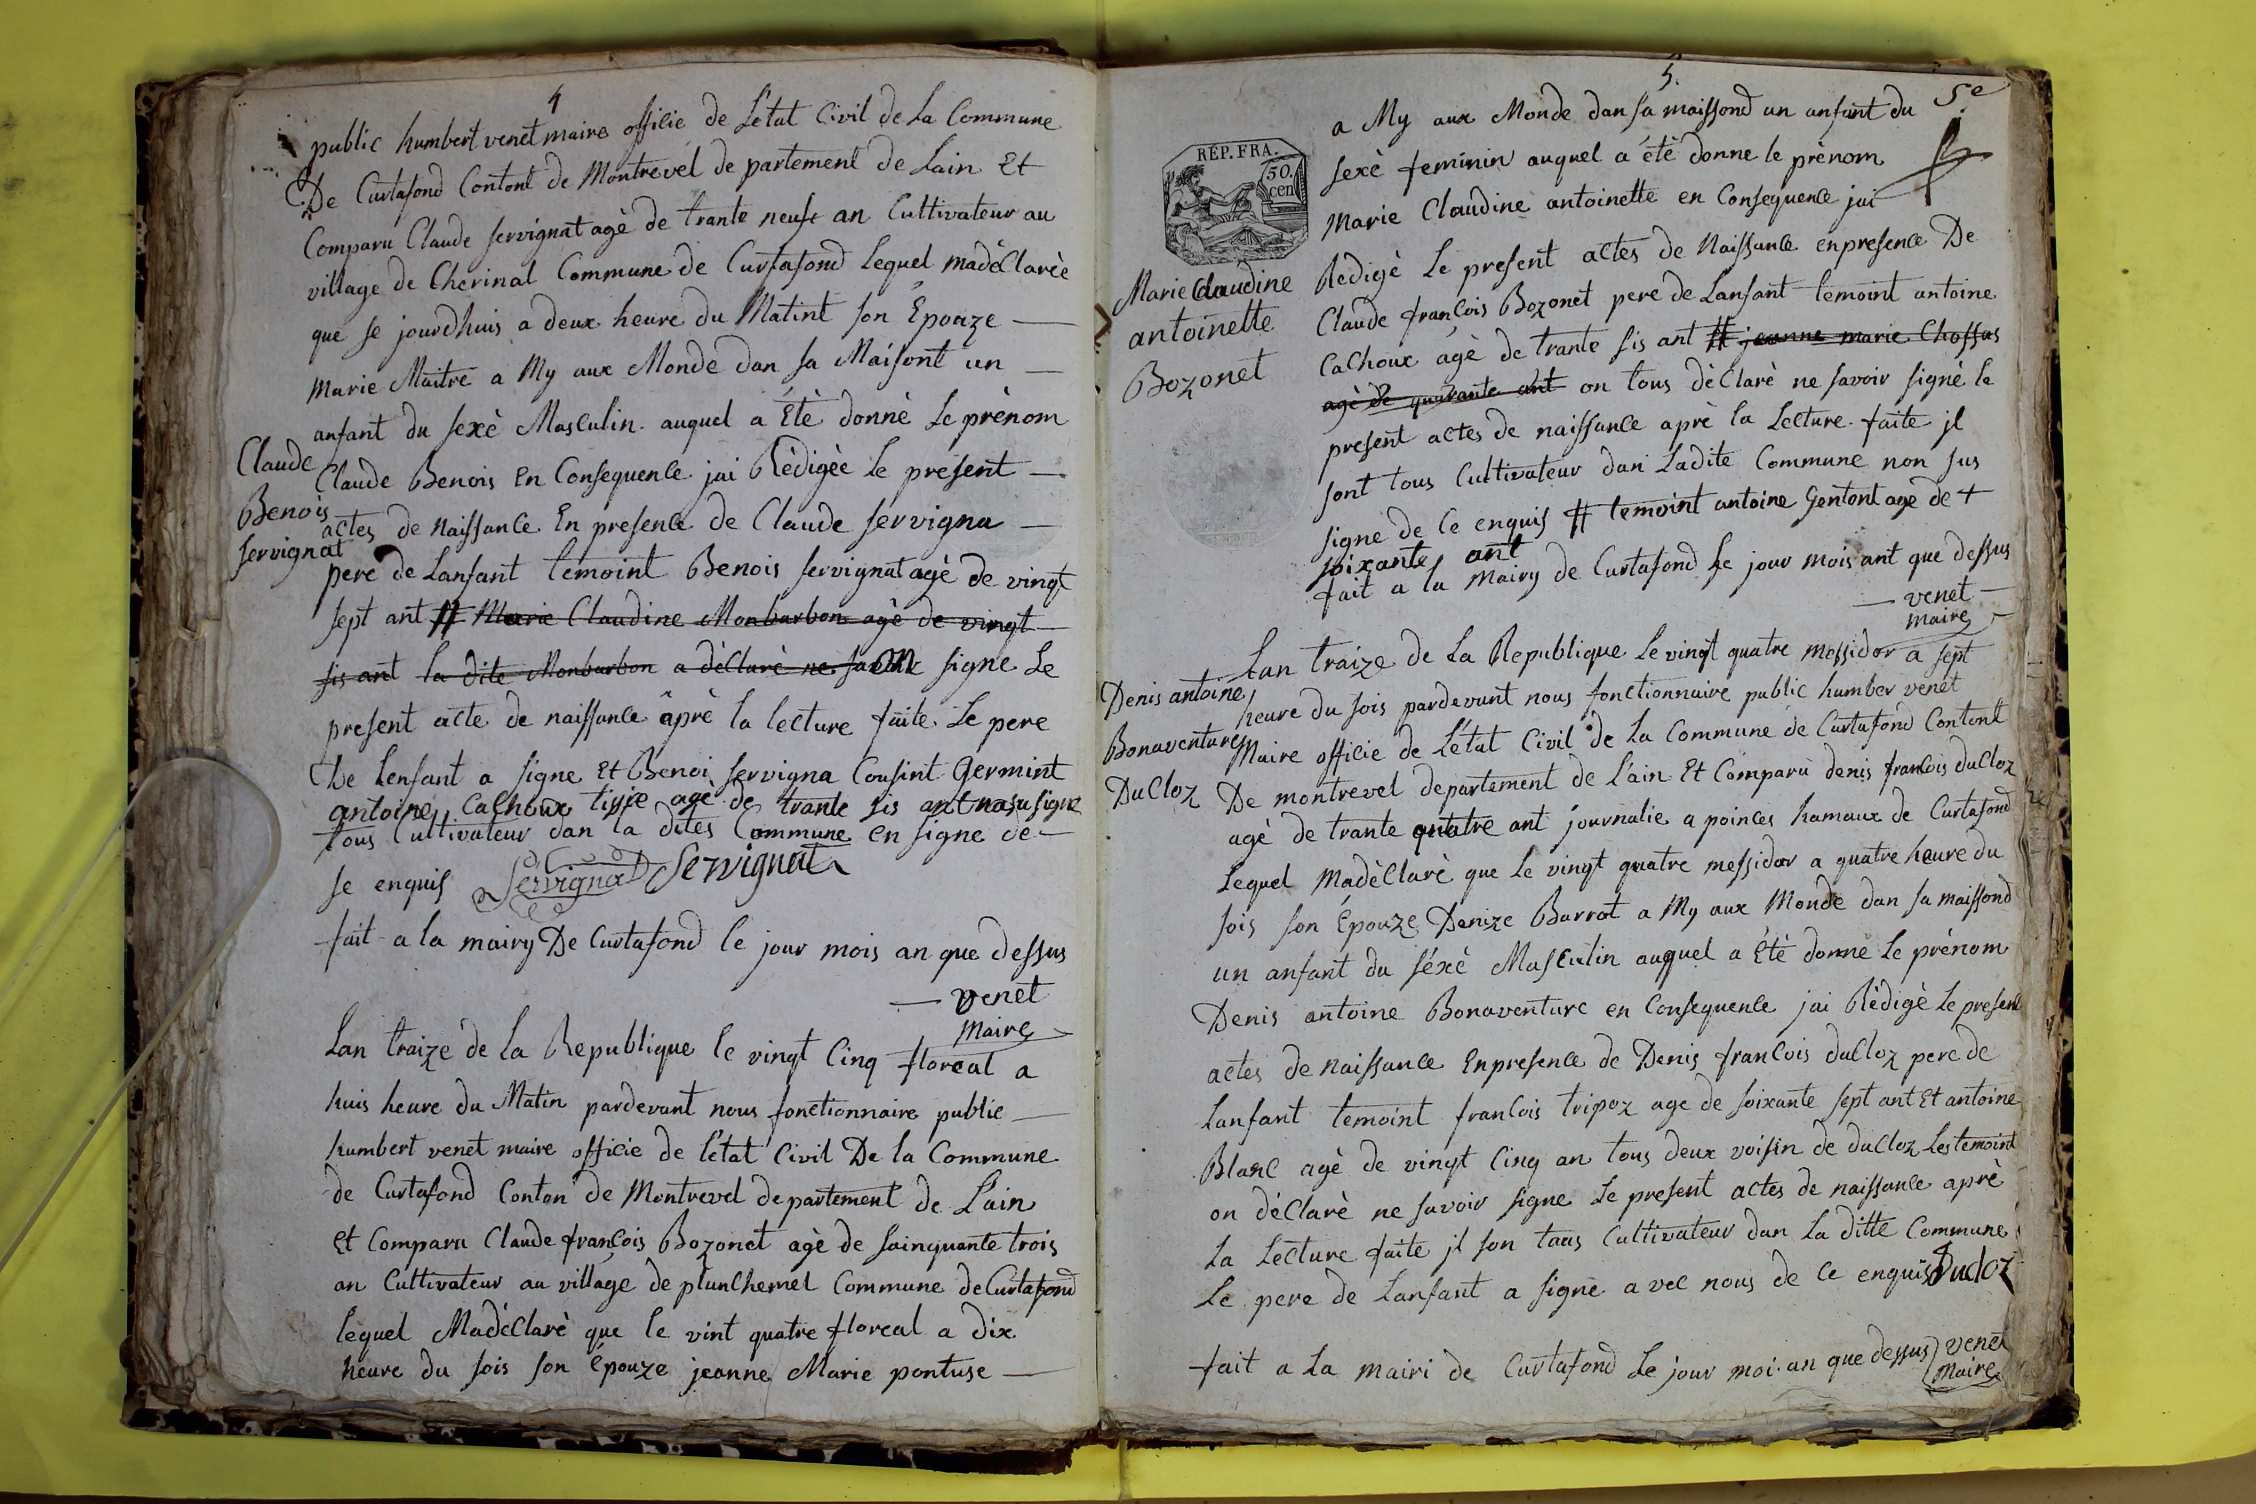 4
public humbert venet maire officié de L'état Civil de La Commune
De Curtafond Contont de Montrevel departement de Lain Et
Comparu Claude servignat agè de trante neuf an Cultivateur au
village de Cherinal Commune de Curtafond Lequel madèClarèe
que se jourdhuis a deux heure du Matint son Épouze
Marie Maitre a My aux Monde dan sa Maisont un
anfant du sexè Masculin auquel a Étè donnè Le prènom
Claude Benois En Consequence jai Rèdigèe Le present
Claude
Benois
servignat
actes de Naissance En presence de Claude servigna
pere de Lanfant temoint Benois servignat agè de vingt
sept ant # Marie Claudine Monbarbon agè de vingt
sis ant la dite Monbarbon a dèClarè ne savoir on signe Le
present acte de naissance âprè la lecture faite Le pere
De Lenfant a signe Et Benoi servigna Cousint Germint
antoine Cathoux agè de trante sis ant
tous Cultivateur dan la dites Commune en signe de
se enquis Servignat Servignat
fait a la mairy De Curtafond le jour mois an que dessus
venet
Maire
Lan traize de La Republique le vingt Cinq floreal a
huis heure du Matin pardevant nous fonctionnaire public
humbert venet maire officie de létat Civil De la Commune
de Curtafond Conton de Montrevel departement de L'ain
Et Comparu Claude francois Bozonet agè de sainquante trois
an Cultivateur au village de planchemel Commune de Curtafond
lequel MadèClarè que le vint quatre floreal a dix
heure du sois son épouze jeanne Marie pontuse
5.
5e
a My aux Monde dan sa maissond un anfant du
sexè feminin auquel a étè donne le prènom
Marie Claudine antoinette en Consequence jai
RÉP. FRA.
50.
cen
Marie Claudine
antoinette
Bozonet
Rèdigè Le present actes de Naissance enpresence De
Claude francois Bozonet pere de Lanfant temoint antoine
Cathoux agè de trante sis ant # jeanne marie Chossas
agè de quarante ant on tous dèClarè ne savoir signè le
present actes de naissance aprè la Lecture faite jl
sont tous Cultivateur dan Ladite Commune non sus
signe de Ce enquis # temoint antoine Gentont age de +
soixante ant
fait a la Mairy de Curtafond Le jour mois ant que dessus
venet
maire
Lan traize de La Republique Le vingt quatre Messidor a sept
Denis antoine
Bonaventure
DuCloz
heure du sois pardevant nous fonctionnaire public humber venet
Maire officie de L'état Civil de La Commune de Curtafond Contont
De montrevel departement de L'ain Et Comparu denis francois duCloz
agè de trante quatre ant journalie a poinces hamaux de Curtafond
Lequel MadèClarè que Le vingt quatre messidor a quatre heure du
sois son Épouze Denize Barrat a My aux Monde dan sa maissond
un anfant du séxè Masculin auquel a Étè donne Le prènom
Denis antoine Bonaventure en Consequence jai Rèdigè Le present
actes de Naissance Enpresence de Denis francois duCloz pere de
Lanfant temoint francois tripoz age de soixante sept ant Et antoine
Blanc agè de vingt Cinq an tous deux voisin de duCloz Les temoint
on dèClarè ne savoir signe Le present actes de naissance aprè
La Lecture faite jl son taus Cultivateur dan La ditte Commune
Le pere de Lanfant a signe a vec nous de Ce enquis Ducloz
fait a La mairi de Curtafond Le jour moi an que dessus venet
Maire